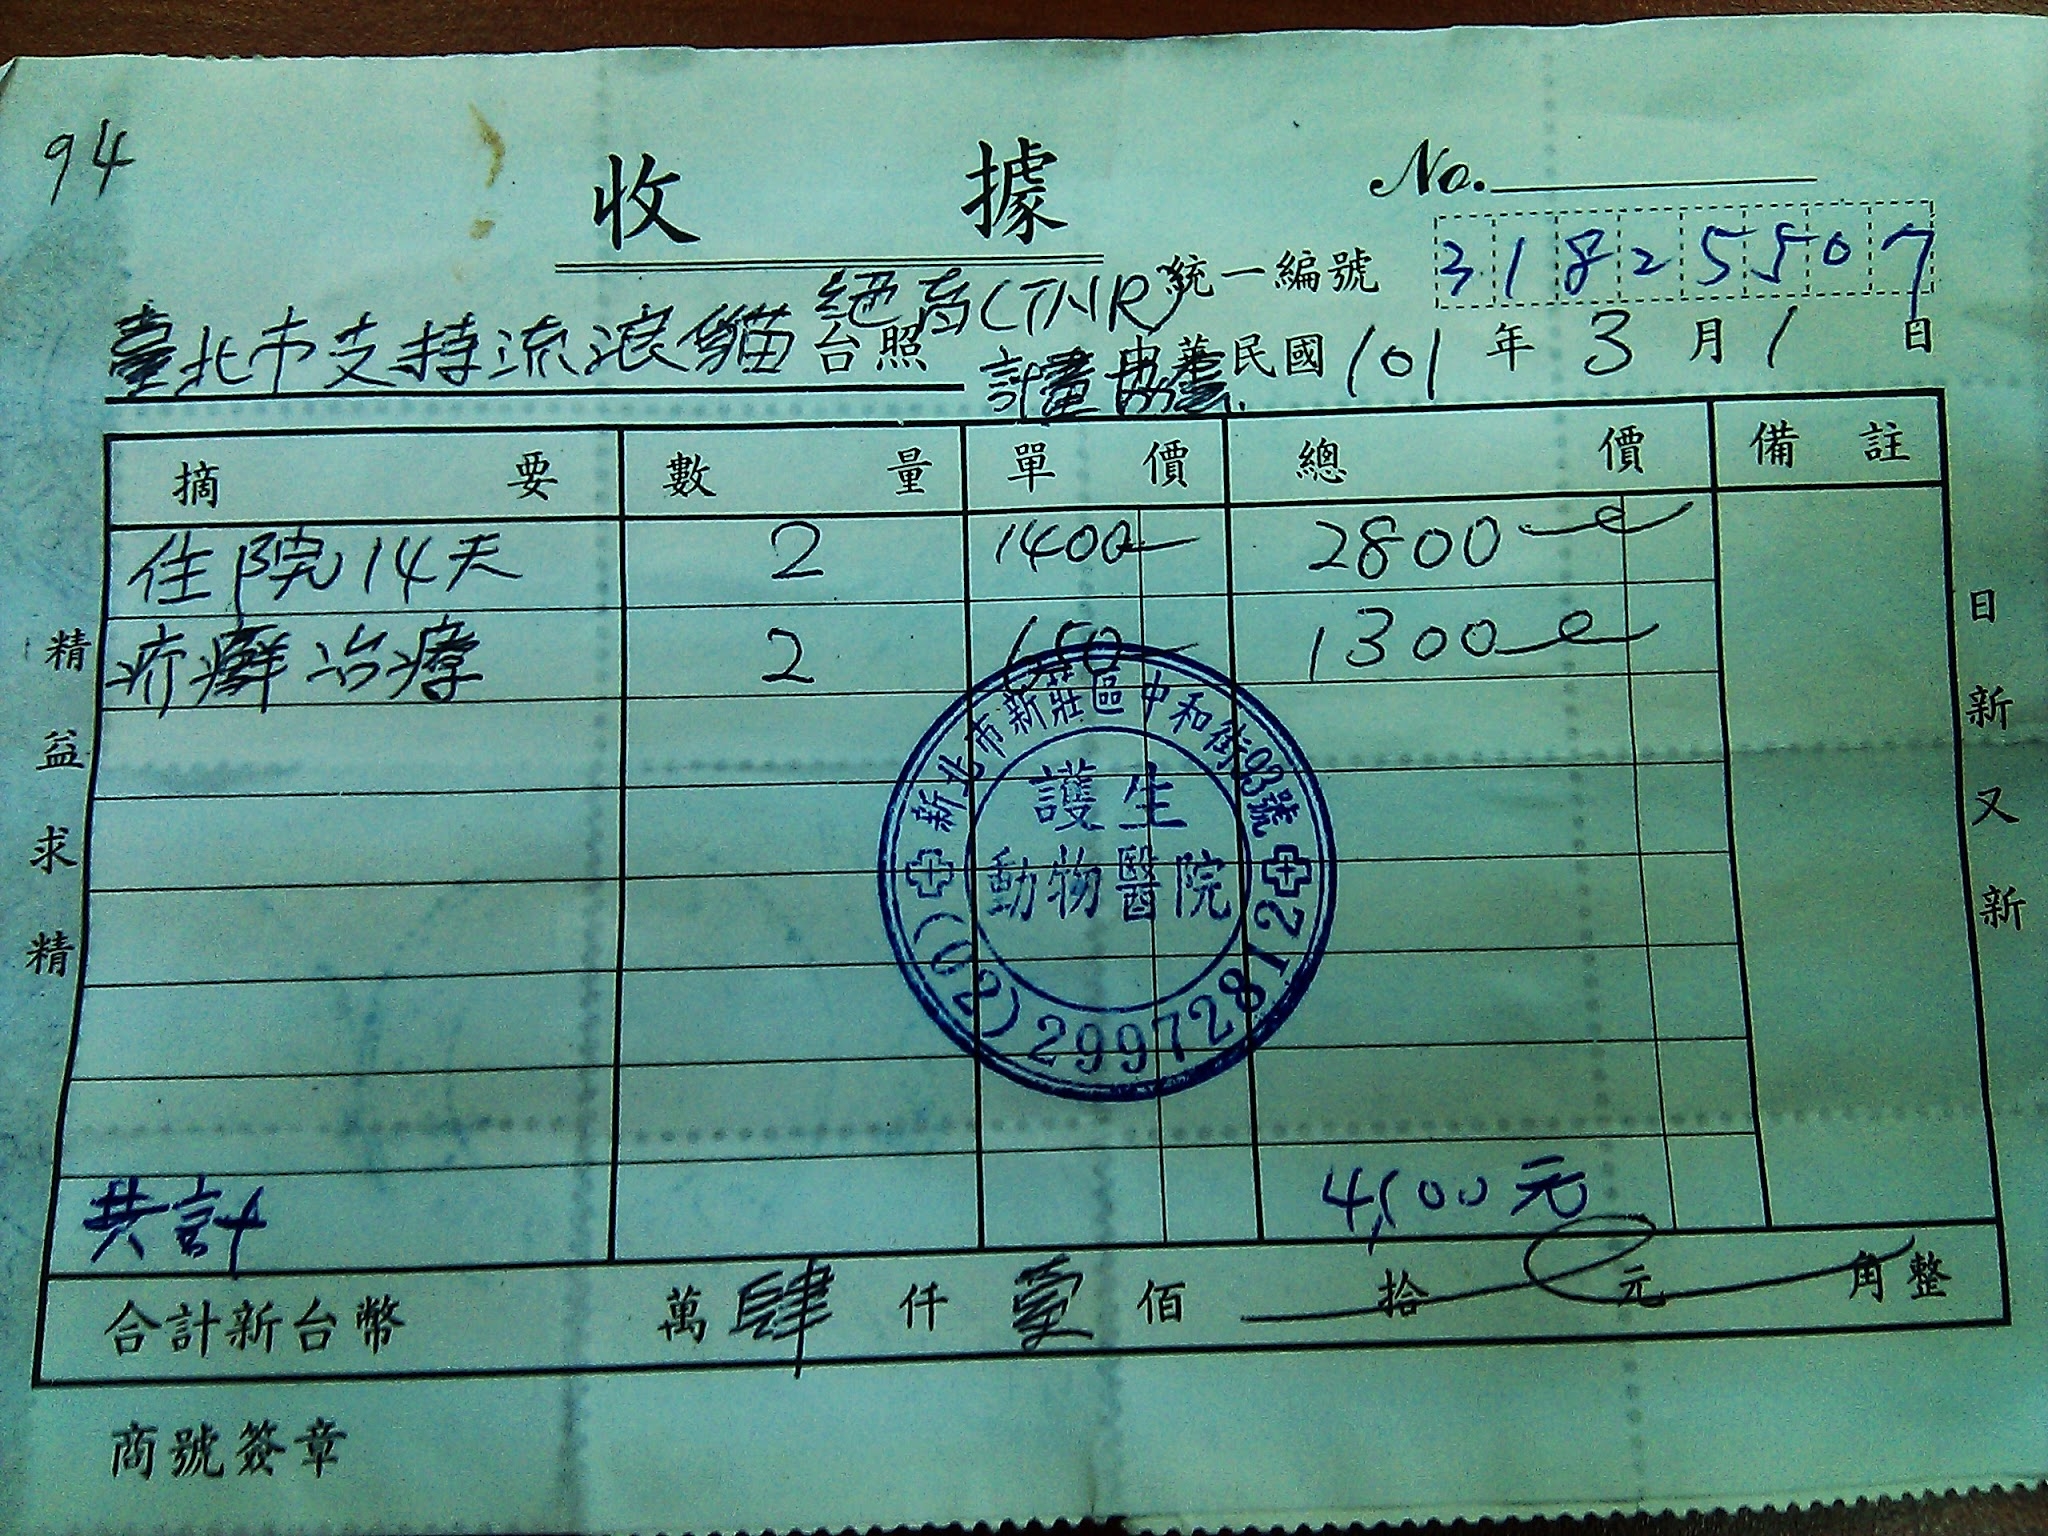 94
收據
No.
統一編號 31825507
臺北市支持流浪貓絕育(TNR)計畫協會 台照
中華民國101年3月1日
摘要 數量 單價 總價 備註
住院14天 2 1400 2800
疥癬治療 2 650 1300
新北市新莊區中和街93號
護生
動物醫院
(02)29972812
共計 4,100元
合計新台幣 萬肆仟壹佰 拾 元 角整
商號簽章
精益求精
日新又新